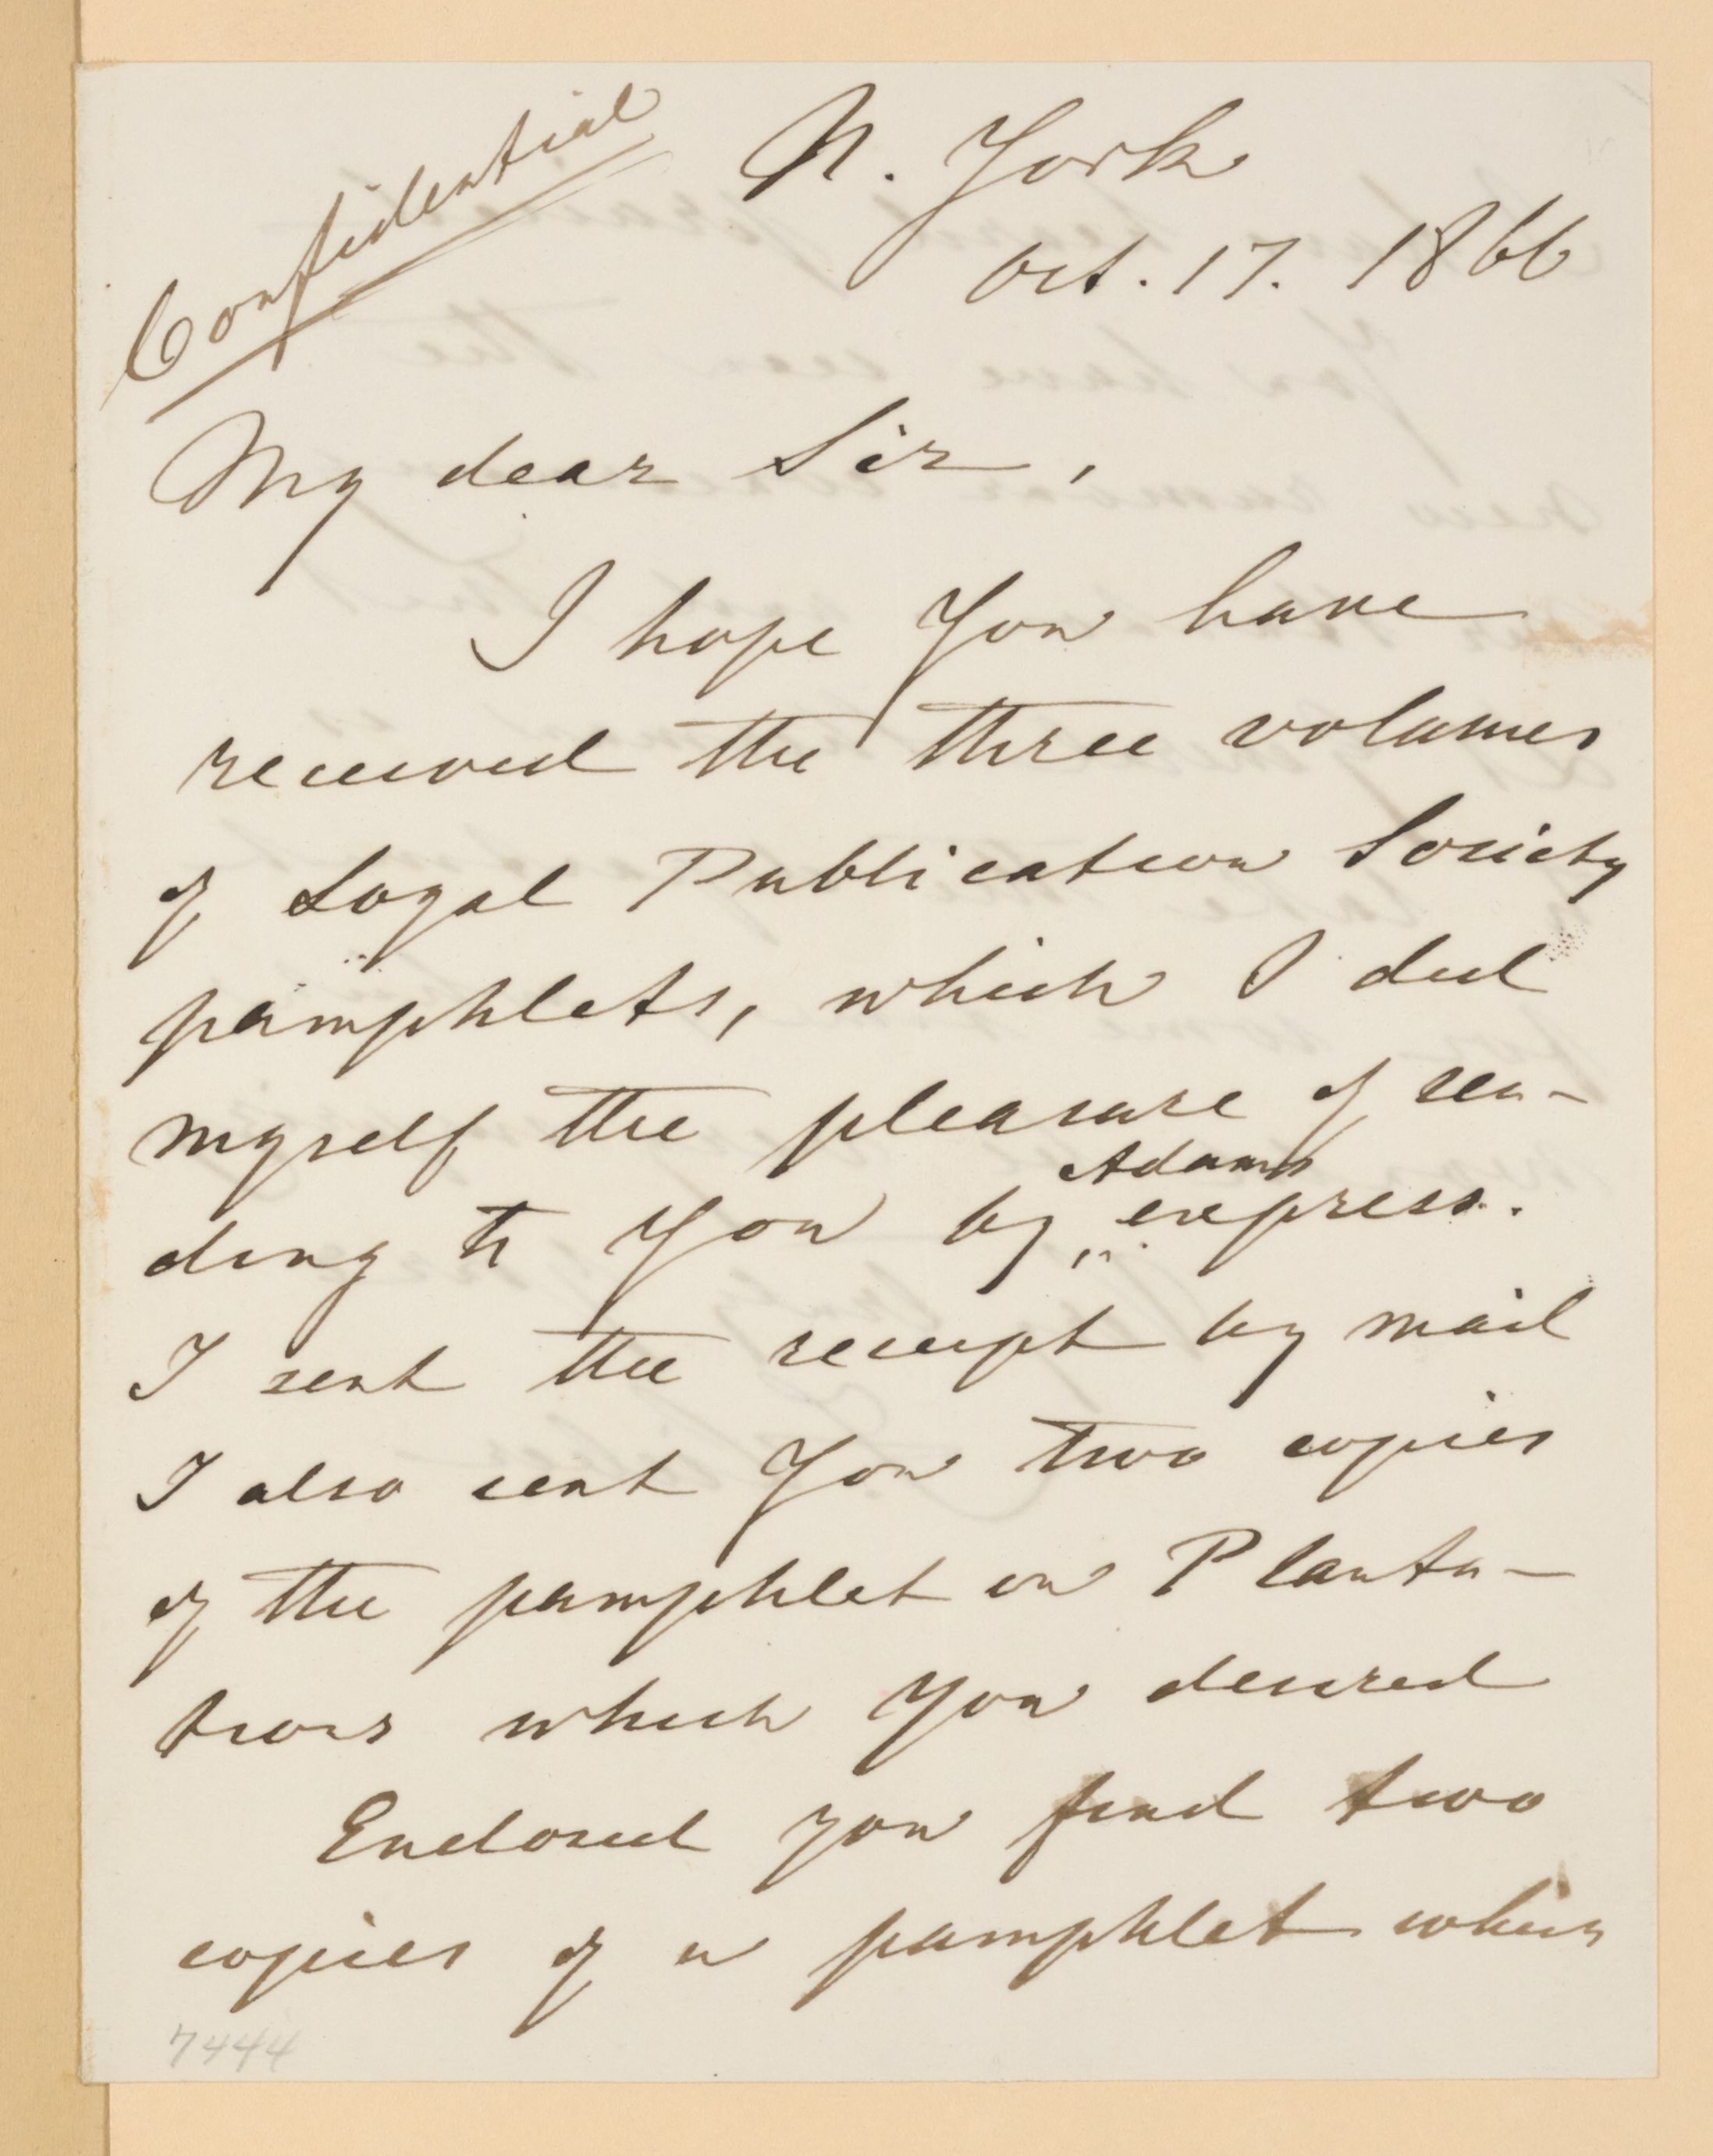 Confidential
N. York
Oct. 17. 1866
My dear Sir,
I hope You have
received the three volumes
of Loyal Publication Society
pamphlets, which I did
myself the pleasure of sen-
ding to You by Adams express.
I sent the receipt by mail
I also sent You two copies
of the pamphlet on Planta-
tions which You desired
Enclosed you find two
copies of a pamphlet which
7444